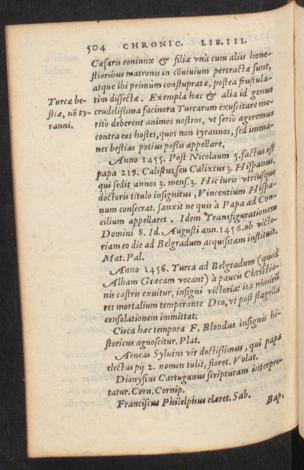 504 CHRONIC. LIB. III.
Cæsaris coniunx & filiæ vnà cum aliis hone-
stioribus matronis in cõuiuium pertractæ sunt,
atque ibi primùm constupratæ, postea frustula-
tim dissectæ. Exempla hæc & alia id genus
Turcæ be-
stiæ, nõ ty-
ranni.
crudelissima facinora Turcarum excusitare me-
ritò deberent animos nostros, vt seriò ageremus
contra eos hostes, quos non tyrannos, sed imma-
nes bestias potius possis appellare.
Anno 1455. Post Nicolaum 5. factus est
papa 219. Calistus seu Calixtus 3. Hispanus,
qui sedit annos 3. mens. 3. Hic iuris vtriusque
doctoris titulo insignitus, Vincentium Hispa-
num consecrat. sanxit ne quis à Papa ad Con-
cilium appellaret. Idem Transfigurationem
Domini 8. Id. Augusti ann. 1456. ob victo-
riam eo die ad Belgradum acquisitam instituit.
Mat. Pal.
Anno 1456. Turca ad Belgradum (quod
Albam Græcam vocant) à paucis Christia-
nis castris exuitur, insigni victoria: ita nimirũ
res mortalium temperante Deo, vt post flagella
consolationem immittat.
Circa hæc tempora F. Blondus insignis hi-
storicus agnoscitur. Plat.
Aeneas Syluius vir doctissimus, qui papa
electus pij 2. nomen tulit, floret. Volat.
Dionysius Cartuganus scripturam interpre-
tatur. Corn. Cornip.
Franciscus Philelphus claret. Sab.
Bap.